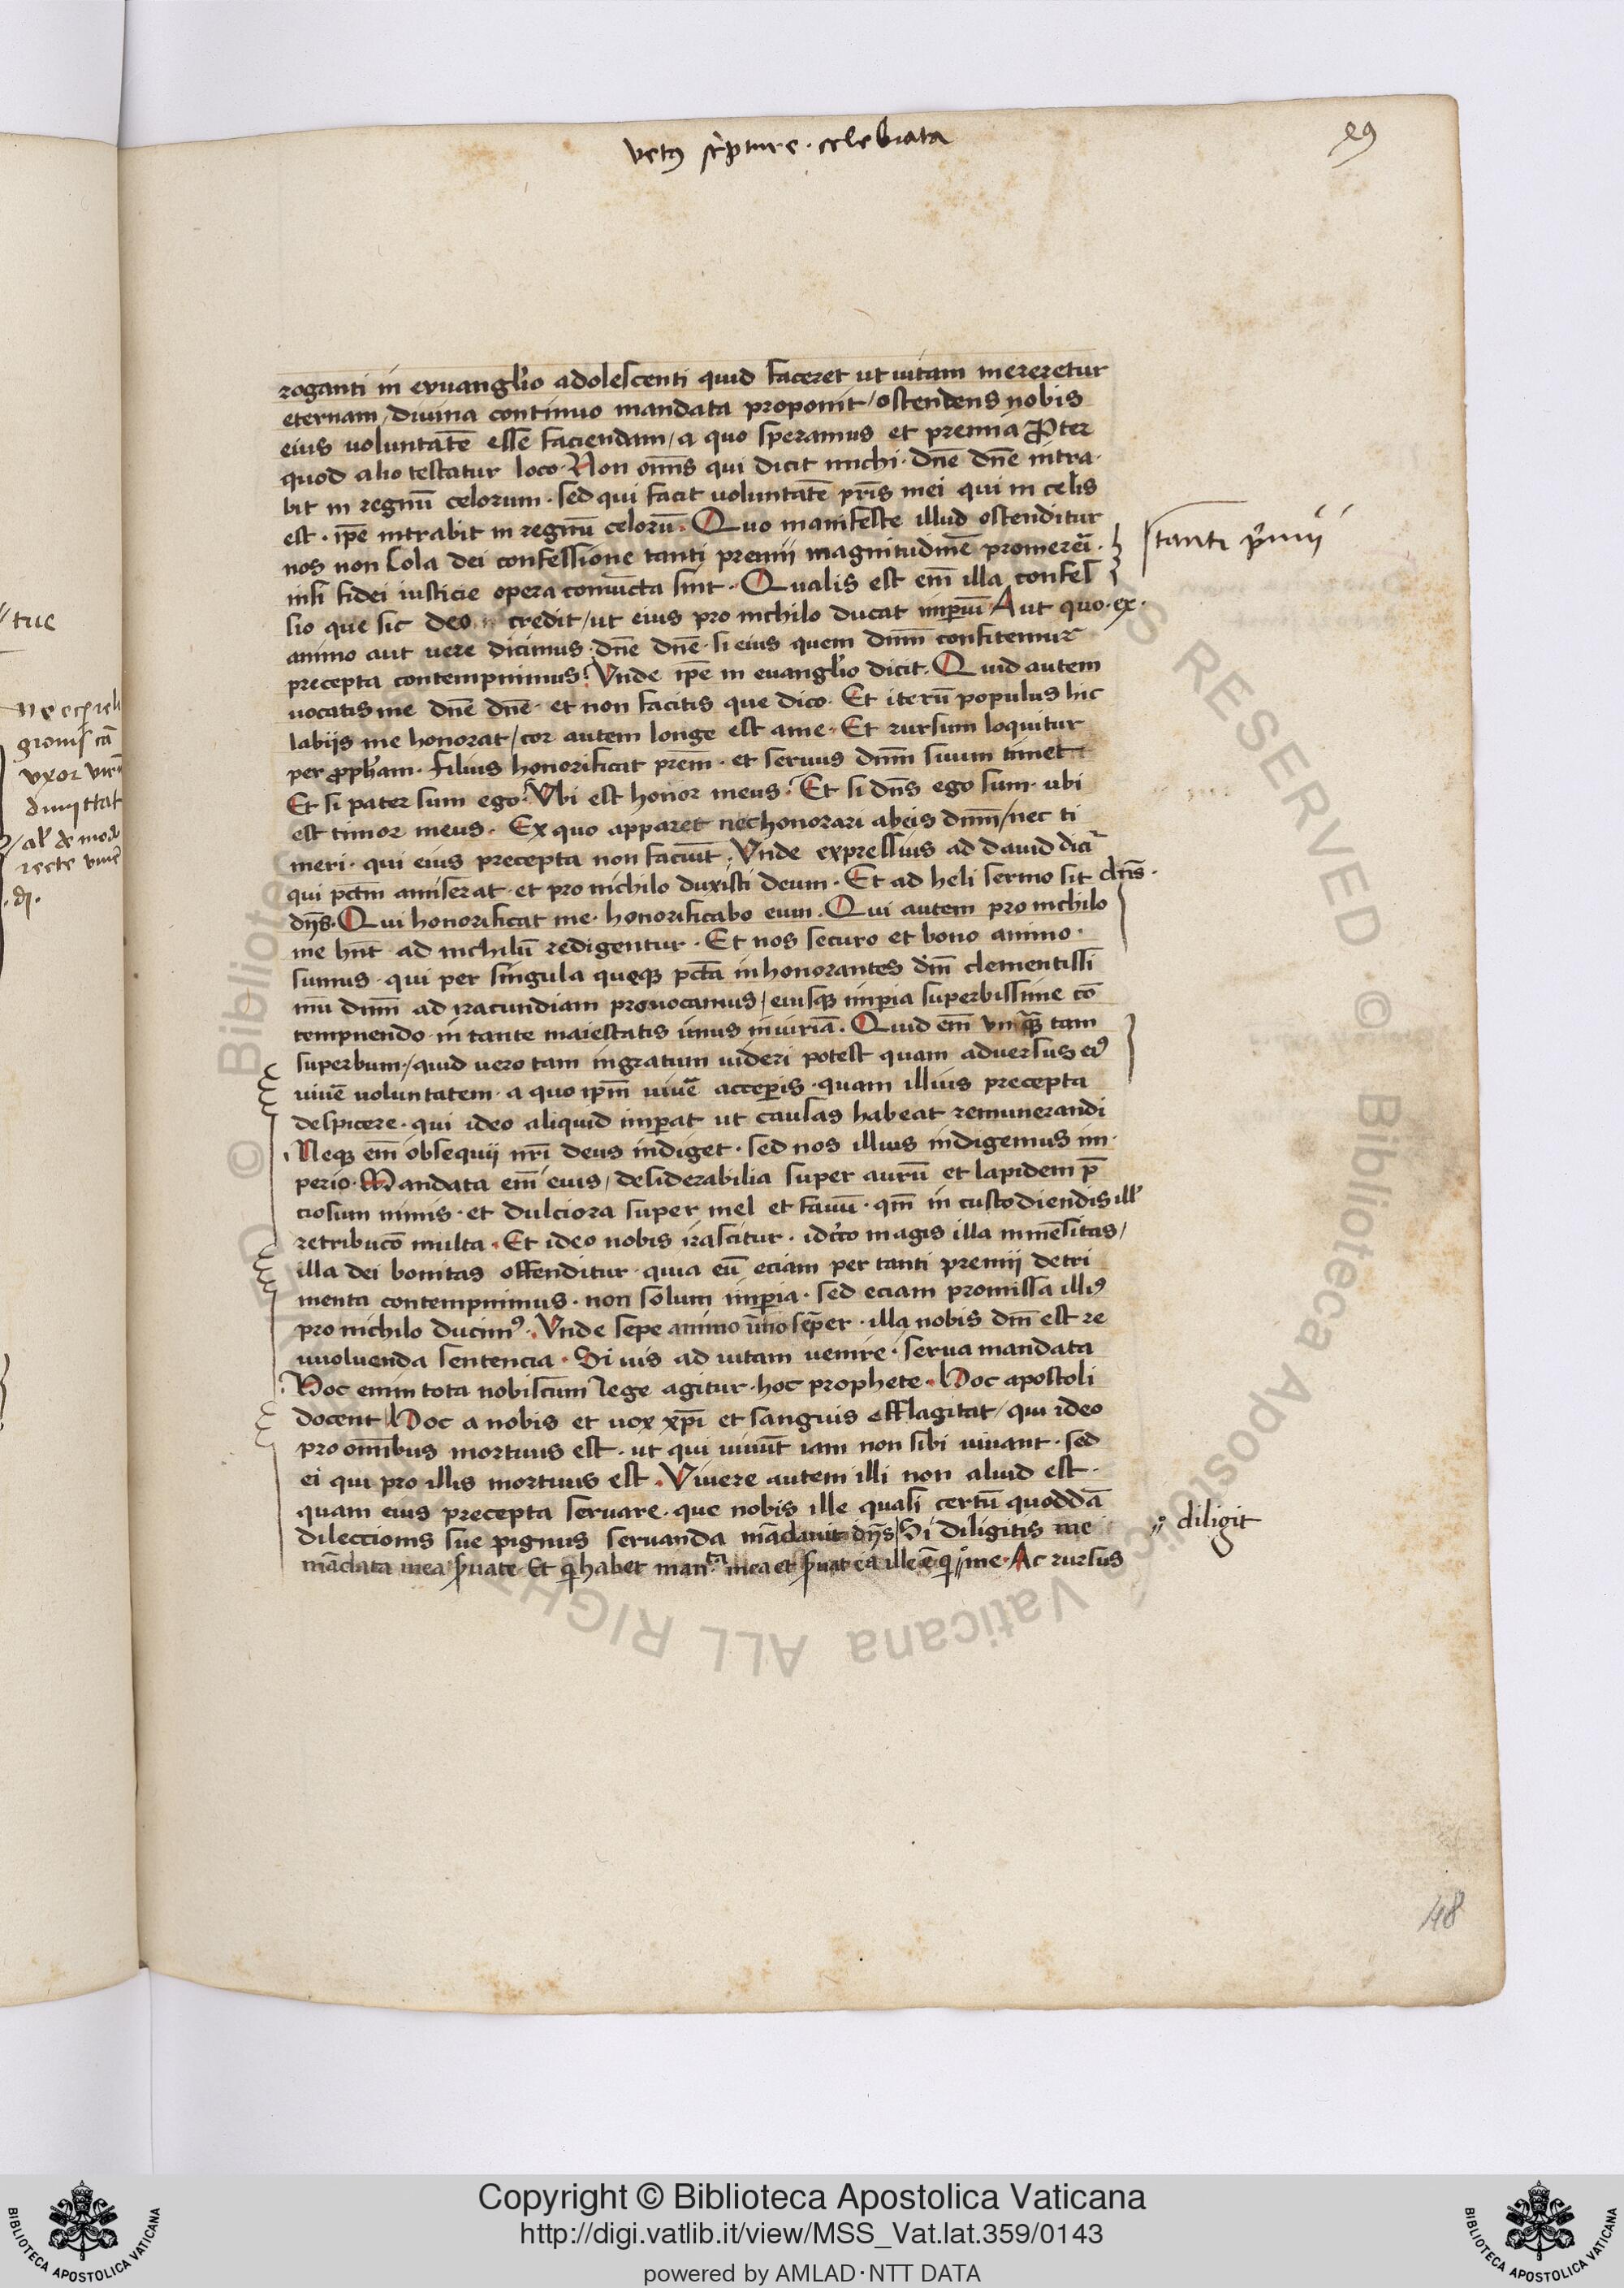 vetꝰ scpture · celebrata
roganti in evuanglio adolescenti quid faceret ut uitam mereretur
eternam / diuina continuo mandata proponit / ostendens nobis
eius uoluntatē esse faciendam / a quo speramus et premia Pter
quod alio testatur loco · Non om̄s qui dicit michi · dn̄e dn̄e intra
bit in regnū celorum · sed qui facit uoluntatē pr̄is mei qui in celis
est · ip̄e intrabit in regnū celorū · Quo manifeste illud ostenditur
nos non sola dei confessione tanti premii magnitudinē promereri ·
nisi fidei iusticie opera coniuncta sint · Qualis est em̄ illa confes
sio que sic deo credit / ut eius pro nichilo ducat imperiū Aut quo · ex ·
animo aut uere dicimus dn̄e dn̄e · si eius quem dnm̄ confitemur
precepta contempnimus? Vnde ip̄e in euanglio dicit · Quid autem
uocatis me dn̄e dn̄e · et non facitis que dico · Et iterū populus hic
labijs me honorat / cor autem longe est a me · Et rursum loquitur
per ppham · filius honorificat prem̄ · et seruus dnm̄ suum timet
Et si pater sum ego · Vbi est honor meus · Et si dn̄s ego sum · ubi
est timor meus · Ex quo apparet nec honorari ab eis dnm̄ / nec ti
meri · qui eius precepta non faciūt · Vnde expressius ad dauid dicit̄
qui pctm̄ amiserat · et pro nichilo duxisti deum · Et ad heli sermo fit dn̄s ·
dn̄s · Qui honorificat me · honorificabo eum · Qui autem pro nichilo
me hn̄t ad nichilū redigentur · Et nos securo et bono animo ·
sumus · qui per singula queq pctā inhonorantes dm̄ clementissi
mū dnm̄ ad iracundiam prouocamus / eiusq impia superbissime cō
tempnendo · in tante maiestatis imus iniuriā · Quid em̄ vnq̄ tam
superbum / quid uero tam ingratum uideri potest quam aduersus eiꝰ
uiuē uoluntatem · a quo ipm̄ uiuē acceperis · quam illius precepta
despicere · qui ideo aliquid imperat ut causas habeat remunerandi
Neq em̄ obsequii nr̄i deus indiget · sed nos illius indigemus im
perio · Mandata em̄ eius / desiderabilia super aurū et lapidem p̄
ciosum nimis · et dulciora super mel et fauū · qm̄ in custodiendis ill'
retribucō multa · Et ideo nobis irascitur · idcco magis illa inmēsitas /
illa dei bonitas offenditur · quia eū eciam per tanti premii detri
menta contempnimus · non solum imperia · sed eciam promissa illiꝰ
pro nichilo ducimꝰ · Vnde sepe animo īmo semper · illa nobis dn̄i est re
uuoluenda sentencia · Si uis ad uitam uenire · serua mandata
Hoc enim tota nobiscum lege agitur · hoc prophete · Hoc apostoli
docent Hoc a nobis et uox xp̄i et sanguis efflagitat / qui ideo
pro om̄ibus mortuus est · ut qui uiuūt iam non sibi uiuant · sed
ei qui pro illis mortuus est · Viuere autem illi non aliud est ·
quam eius precepta seruare · que nobis ille quasi certū quoddā
dileccionis sue pignus seruanda mādauit dn̄s Si diligitis me
mādata mea seruate · Et q habet manta mea et seruat ea ille ē q me · Ac rursus
tanti premii
diligit
48
tue
uxor
dimittat
Copyright © Biblioteca Apostolica Vaticana
http://digi.vatlib.it/view/MSS_Vat.lat.359/0143
powered by AMLAD·NTT DATA
BIBLIOTECA APOSTOLICA VATICANA
BIBLIOTECA APOSTOLICA VATICANA